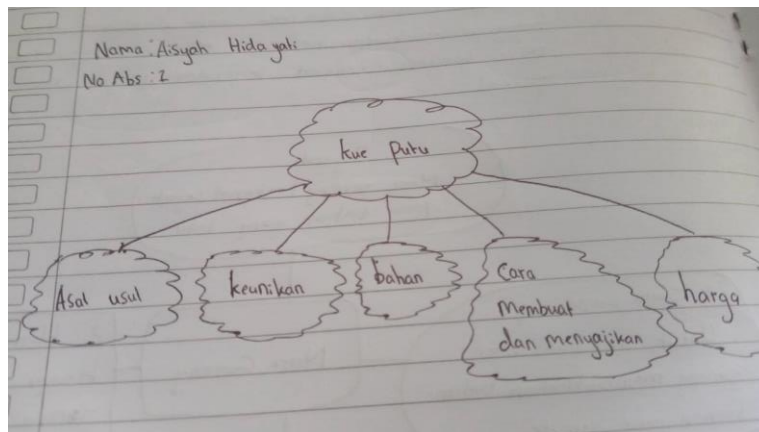 Nama : Aisyah Hidayati
No Abs : 2
kue Putu
Asal usul
keunikan
bahan
Cara
Membuat
dan menyajikan
harga